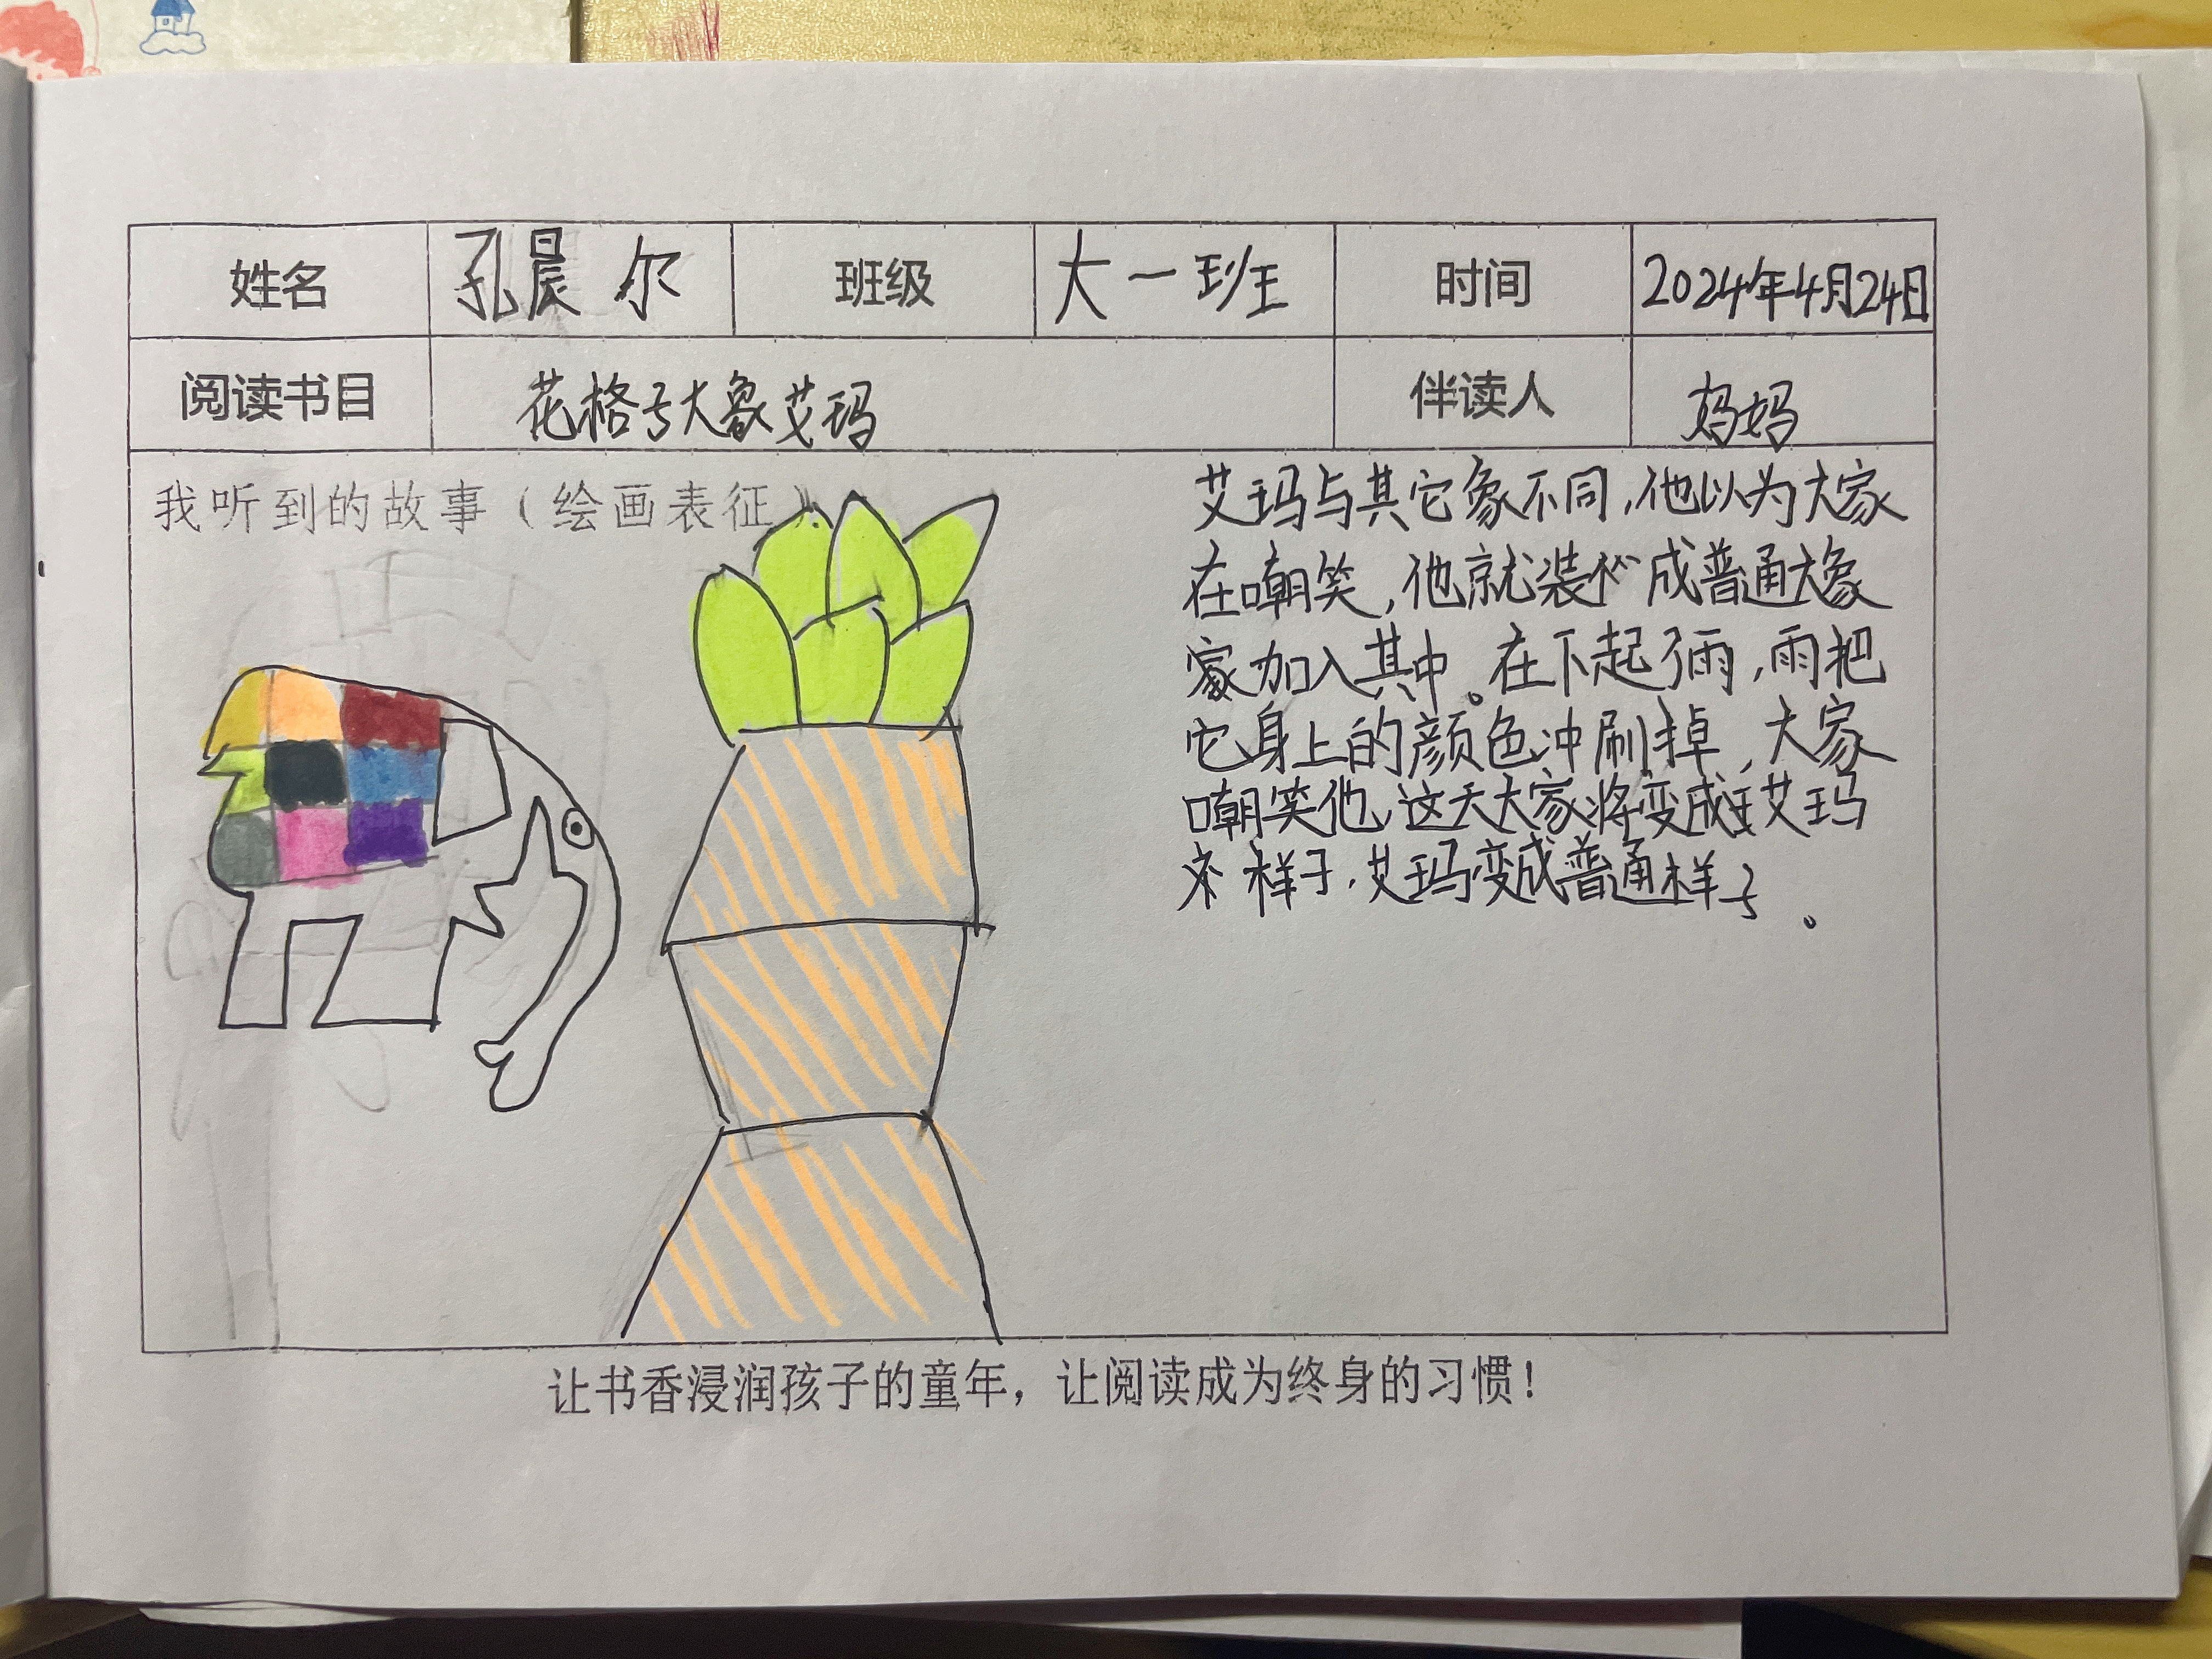 姓名 孔晨尔 班级 大一班 时间 2024年4月24日
阅读书目 花格子大象艾玛 伴读人 妈妈
我听到的故事（绘画表征）
艾玛与其它象不同,他以为大家
在嘲笑,他就装 成普通大象
加入其中。在下起了雨,雨把
它身上的颜色冲刷掉,大家
嘲笑他,这天大家将变成艾玛
样子,艾玛变成普通样子。
让书香浸润孩子的童年，让阅读成为终身的习惯！